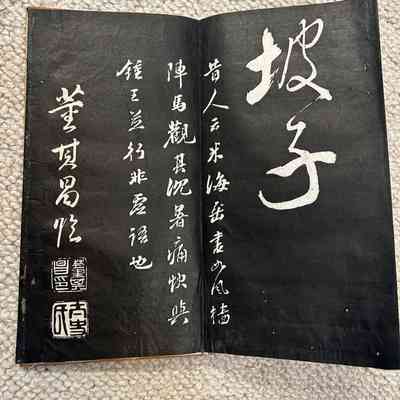 坡子
昔人云米海岳書如風樯
陣馬觀其沉著痛快與
鍾王並行非虛語也
董其昌臨